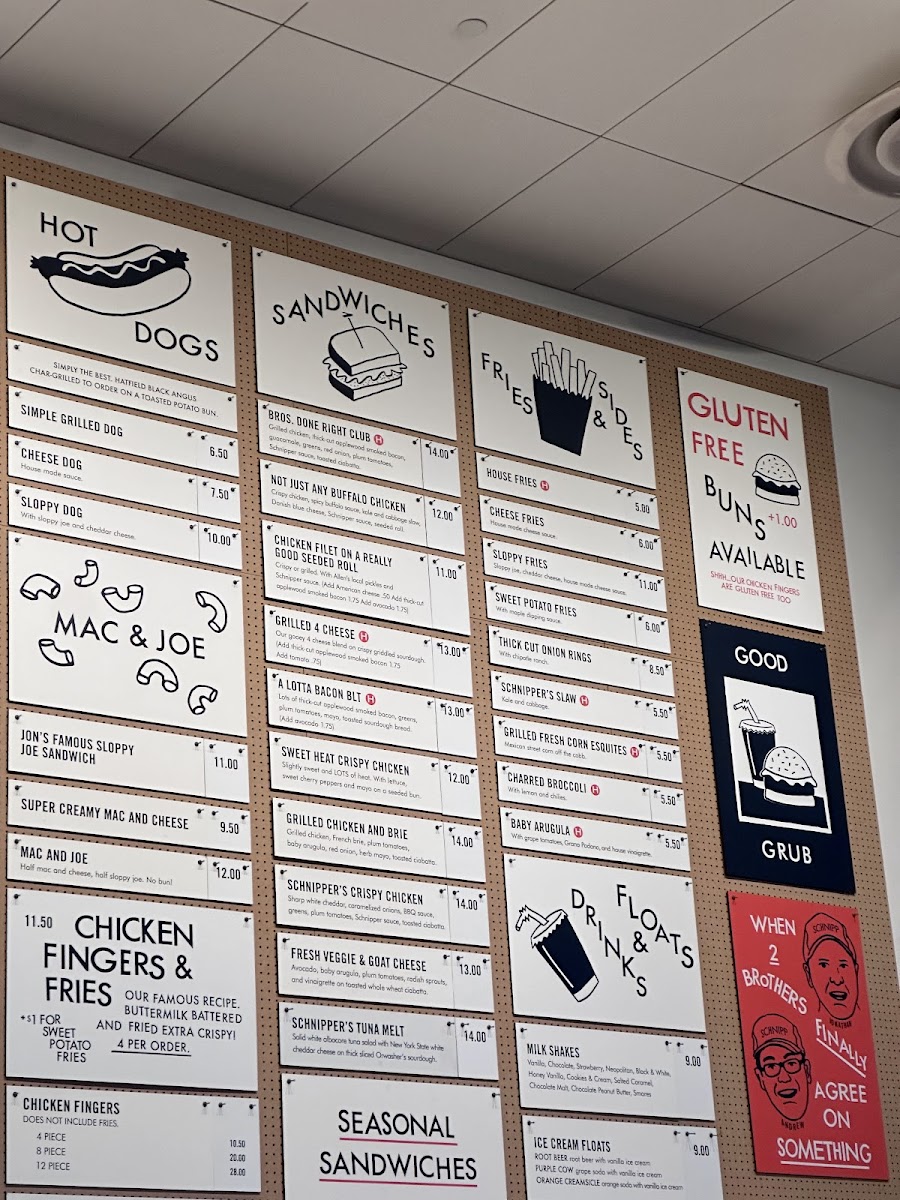 HOT
DOGS
SIMPLY THE BEST. HATFIELD BLACK ANGUS
CHAR-GRILLED TO ORDER ON A TOASTED POTATO BUN.
SIMPLE GRILLED DOG 6.50
CHEESE DOG 7.50
House made sauce.
SLOPPY DOG 10.00
With sloppy joe and cheddar cheese.
MAC & JOE
JON'S FAMOUS SLOPPY
JOE SANDWICH 11.00
SUPER CREAMY MAC AND CHEESE 9.50
MAC AND JOE 12.00
Half mac and cheese, half sloppy joe. No bun!
11.50 CHICKEN
FINGERS &
FRIES
OUR FAMOUS RECIPE.
BUTTERMILK BATTERED
AND FRIED EXTRA CRISPY!
4 PER ORDER.
+$1 FOR
SWEET
POTATO
FRIES
CHICKEN FINGERS
DOES NOT INCLUDE FRIES.
4 PIECE 10.50
8 PIECE 20.00
12 PIECE 28.00
SANDWICHES
BROS. DONE RIGHT CLUB H 14.00
Grilled chicken, thick-cut applewood smoked bacon,
guacamole, greens, red onion, plum tomatoes,
Schnipper sauce, toasted ciabatta.
NOT JUST ANY BUFFALO CHICKEN 12.00
Crispy chicken, spicy buffalo sauce, kale and cabbage slaw,
Danish blue cheese, Schnipper sauce, seeded roll.
CHICKEN FILET ON A REALLY
GOOD SEEDED ROLL 11.00
Crispy or grilled. With Allen's local pickles and
Schnipper sauce. (Add American cheese .50 Add thick-cut
applewood smoked bacon 1.75 Add avocado 1.75)
GRILLED 4 CHEESE H 13.00
Our gooey 4 cheese blend on crispy griddled sourdough.
(Add thick-cut applewood smoked bacon 1.75
Add tomato .75)
A LOTTA BACON BLT H 13.00
Lots of thick-cut applewood smoked bacon, greens,
plum tomatoes, mayo, toasted sourdough bread.
(Add avocado 1.75)
SWEET HEAT CRISPY CHICKEN 12.00
Slightly sweet and LOTS of heat. With lettuce,
sweet cherry peppers and mayo on a seeded bun.
GRILLED CHICKEN AND BRIE 14.00
Grilled chicken, French brie, plum tomatoes,
baby arugula, red onion, herb mayo, toasted ciabatta.
SCHNIPPER'S CRISPY CHICKEN 14.00
Sharp white cheddar, caramelized onions, BBQ sauce,
greens, plum tomatoes, Schnipper sauce, toasted ciabatta.
FRESH VEGGIE & GOAT CHEESE 13.00
Avocado, baby arugula, plum tomatoes, radish sprouts,
and vinaigrette on toasted whole wheat ciabatta.
SCHNIPPER'S TUNA MELT 14.00
Solid white albacore tuna salad with New York State white
cheddar cheese on thick sliced Orwasher's sourdough.
SEASONAL
SANDWICHES
FRIES
&
SIDES
HOUSE FRIES H 5.00
CHEESE FRIES 6.00
House made cheese sauce.
SLOPPY FRIES 11.00
Sloppy joe, cheddar cheese, house made cheese sauce.
SWEET POTATO FRIES 6.00
With maple dipping sauce.
THICK CUT ONION RINGS 8.50
With chipotle ranch.
SCHNIPPER'S SLAW H 5.50
Kale and cabbage.
GRILLED FRESH CORN ESQUITES H 5.50
Mexican street corn off the cobb.
CHARRED BROCCOLI H 5.50
With lemon and chilies.
BABY ARUGULA H 5.50
With grape tomatoes, Grana Padano, and house vinaigrette.
FLOATS
&
DRINKS
MILK SHAKES 9.00
Vanilla, Chocolate, Strawberry, Neopolitan, Black & White,
Honey Vanilla, Cookies & Cream, Salted Caramel,
Chocolate Malt, Chocolate Peanut Butter, Smores
ICE CREAM FLOATS 9.00
ROOT BEER root beer with vanilla ice cream
PURPLE COW grape soda with vanilla ice cream
ORANGE CREAMSICLE orange soda with vanilla ice cream
GLUTEN
FREE
BUNS
+1.00
AVAILABLE
SHHH...OUR CHICKEN FINGERS
ARE GLUTEN FREE TOO
GOOD
GRUB
WHEN
2
BROTHERS
SCHNIPP
JONATHAN
FINALLY
SCHNIPP
ANDREW
AGREE
ON
SOMETHING